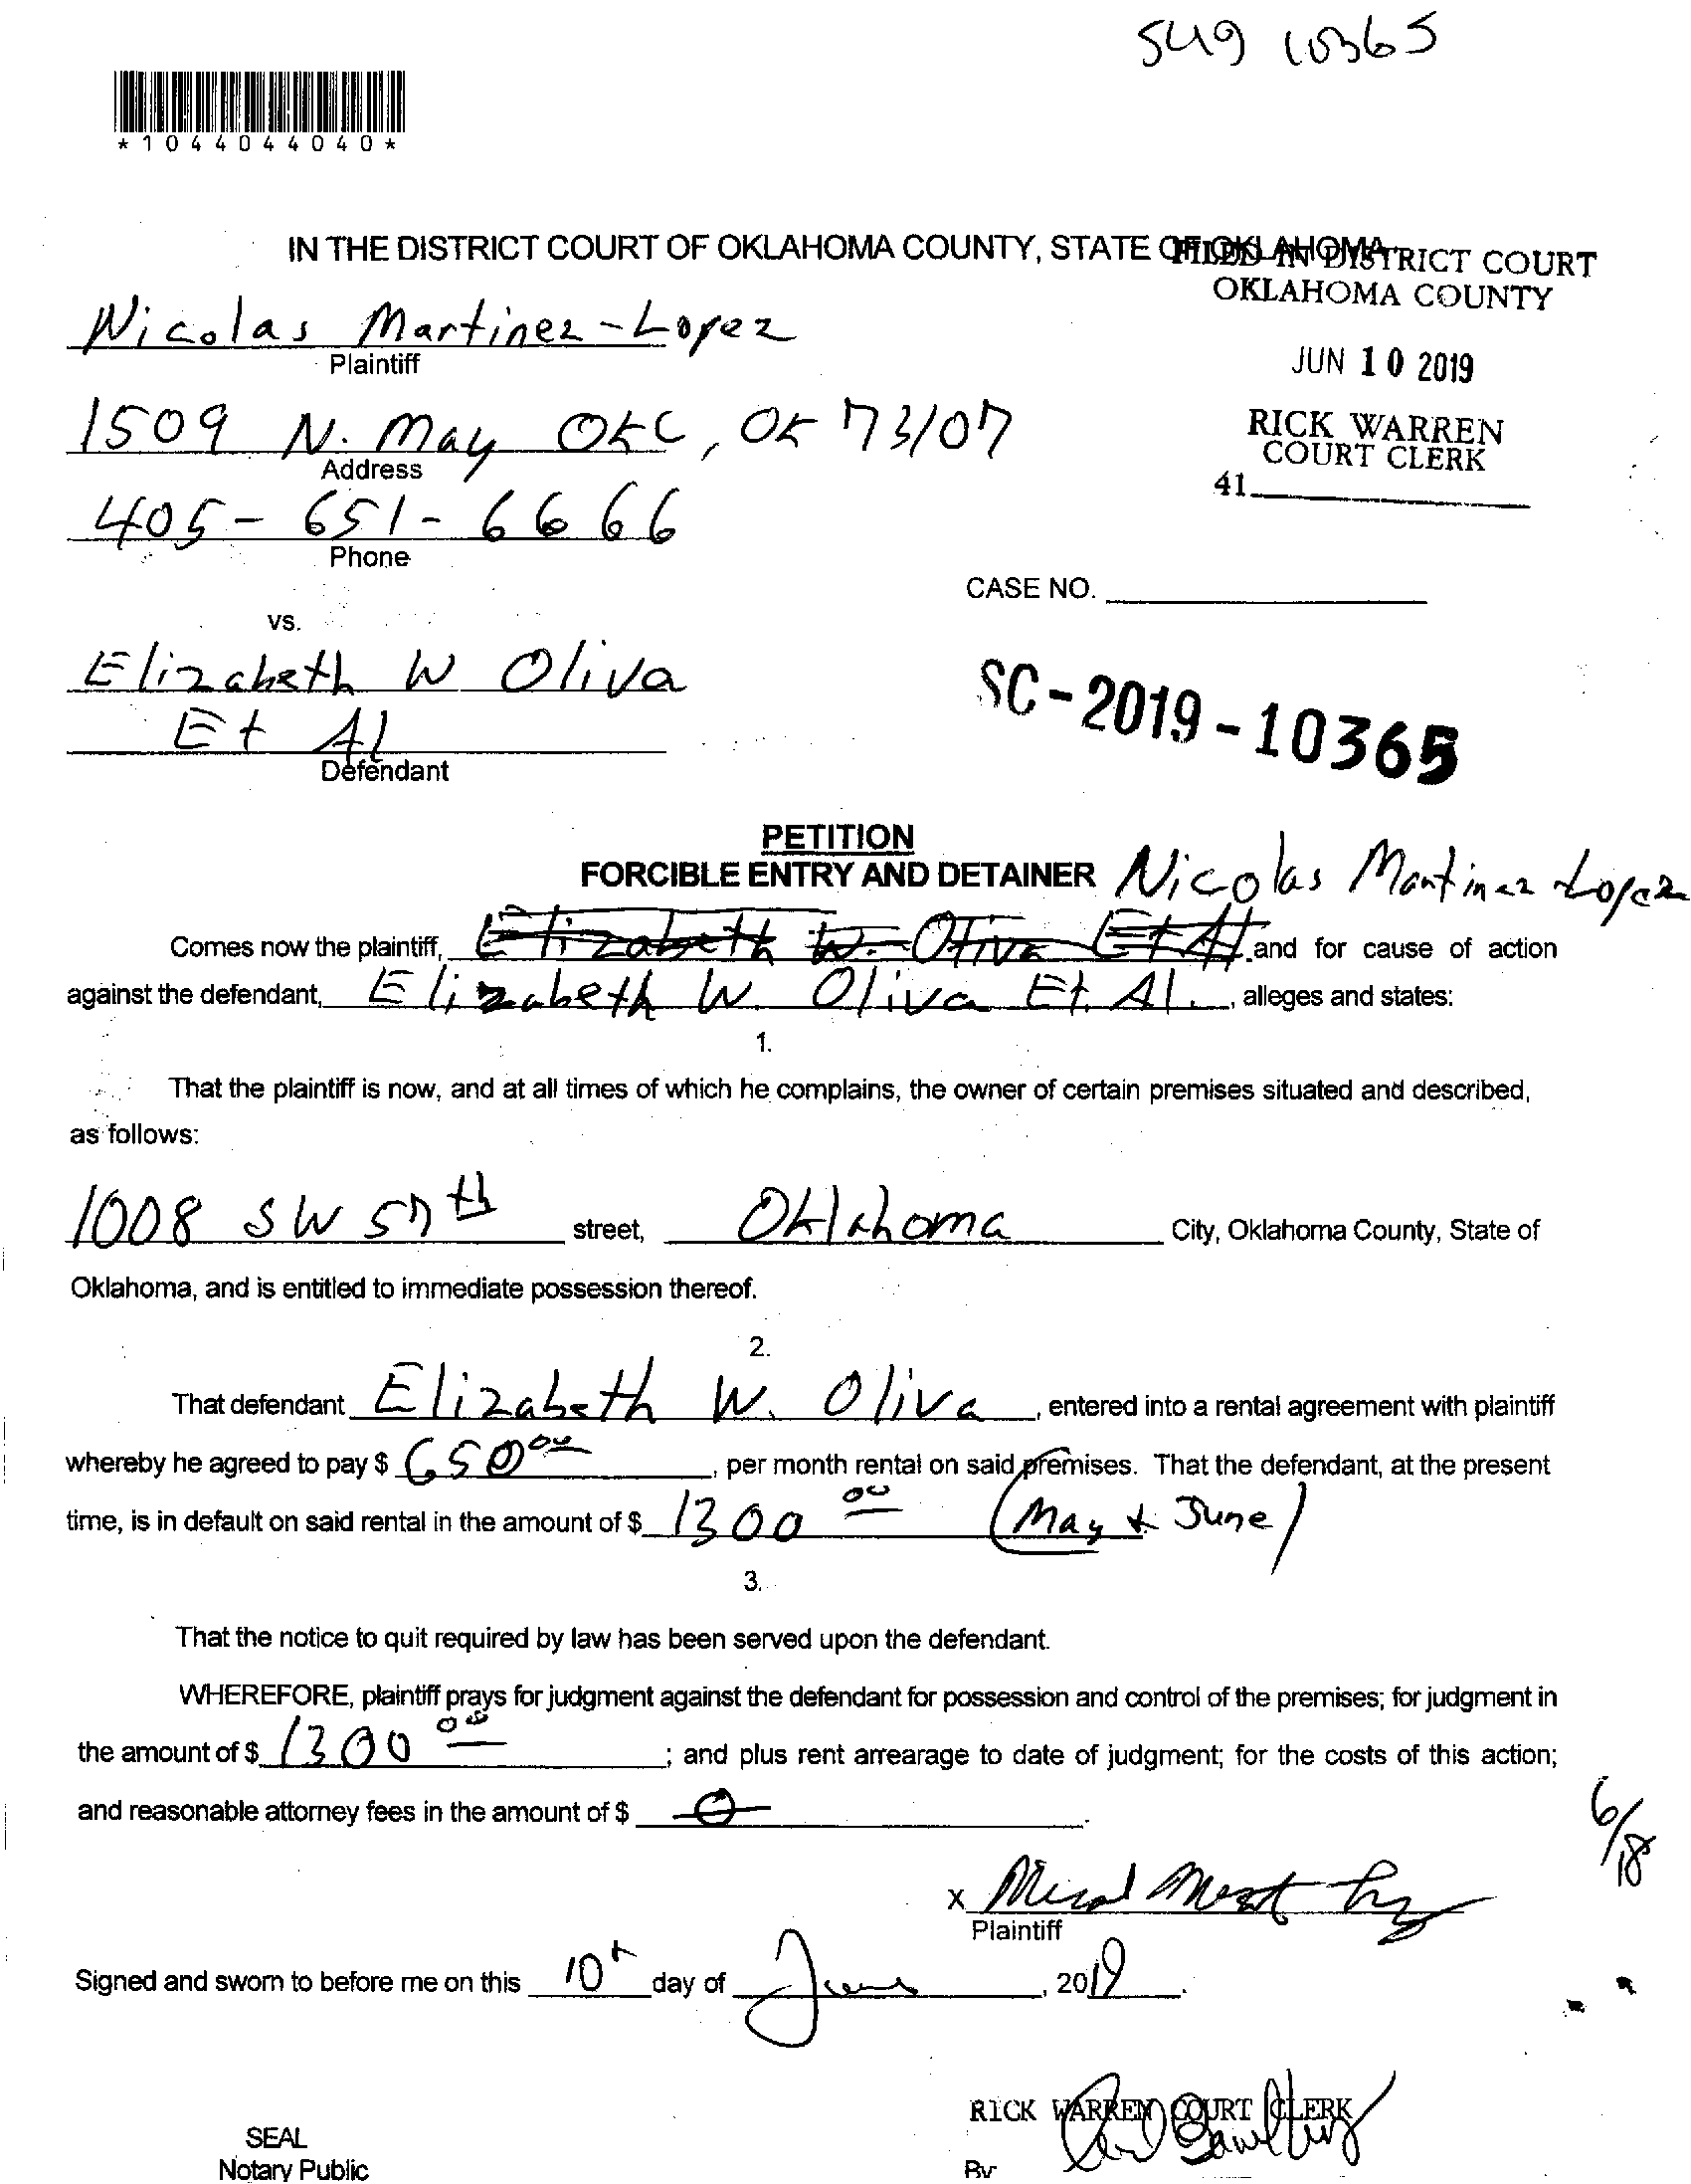 *1044044040*
IN THE DISTRICT COURT OF OKLAHOMA COUNTY, STATE OF OKLAHOMA
FILED IN DISTRICT COURT
OKLAHOMA COUNTY
JUN 10 2019
RICK WARREN
COURT CLERK
41
Nicolas Martinez-Lopez
Plaintiff
1509 N. May OKC, OK 73107
Address
405-651-6666
Phone
CASE NO.
vs.
Elizabeth W Oliva
Et Al
Defendant
SC-2019-10365
PETITION
FORCIBLE ENTRY AND DETAINER
Nicolas Martinez Lopez
Comes now the plaintiff, Elizabeth W. Oliva Et Al and for cause of action
against the defendant, Elizabeth W. Oliva Et. Al., alleges and states:
1.
That the plaintiff is now, and at all times of which he complains, the owner of certain premises situated and described,
as follows:
1008 SW 57th street, Oklahoma City, Oklahoma County, State of
Oklahoma, and is entitled to immediate possession thereof.
2.
That defendant Elizabeth W. Oliva, entered into a rental agreement with plaintiff
whereby he agreed to pay $ 650 00, per month rental on said premises. That the defendant, at the present
time, is in default on said rental in the amount of $ 1300 00 (May & June)
3.
That the notice to quit required by law has been served upon the defendant.
WHEREFORE, plaintiff prays for judgment against the defendant for possession and control of the premises; for judgment in
the amount of $ 1300 00; and plus rent arrearage to date of judgment; for the costs of this action;
and reasonable attorney fees in the amount of $ 0.
6/18
X
Plaintiff
Signed and sworn to before me on this 10th day of June, 2019.
RICK WARREN COURT CLERK
SEAL
Notary Public
By